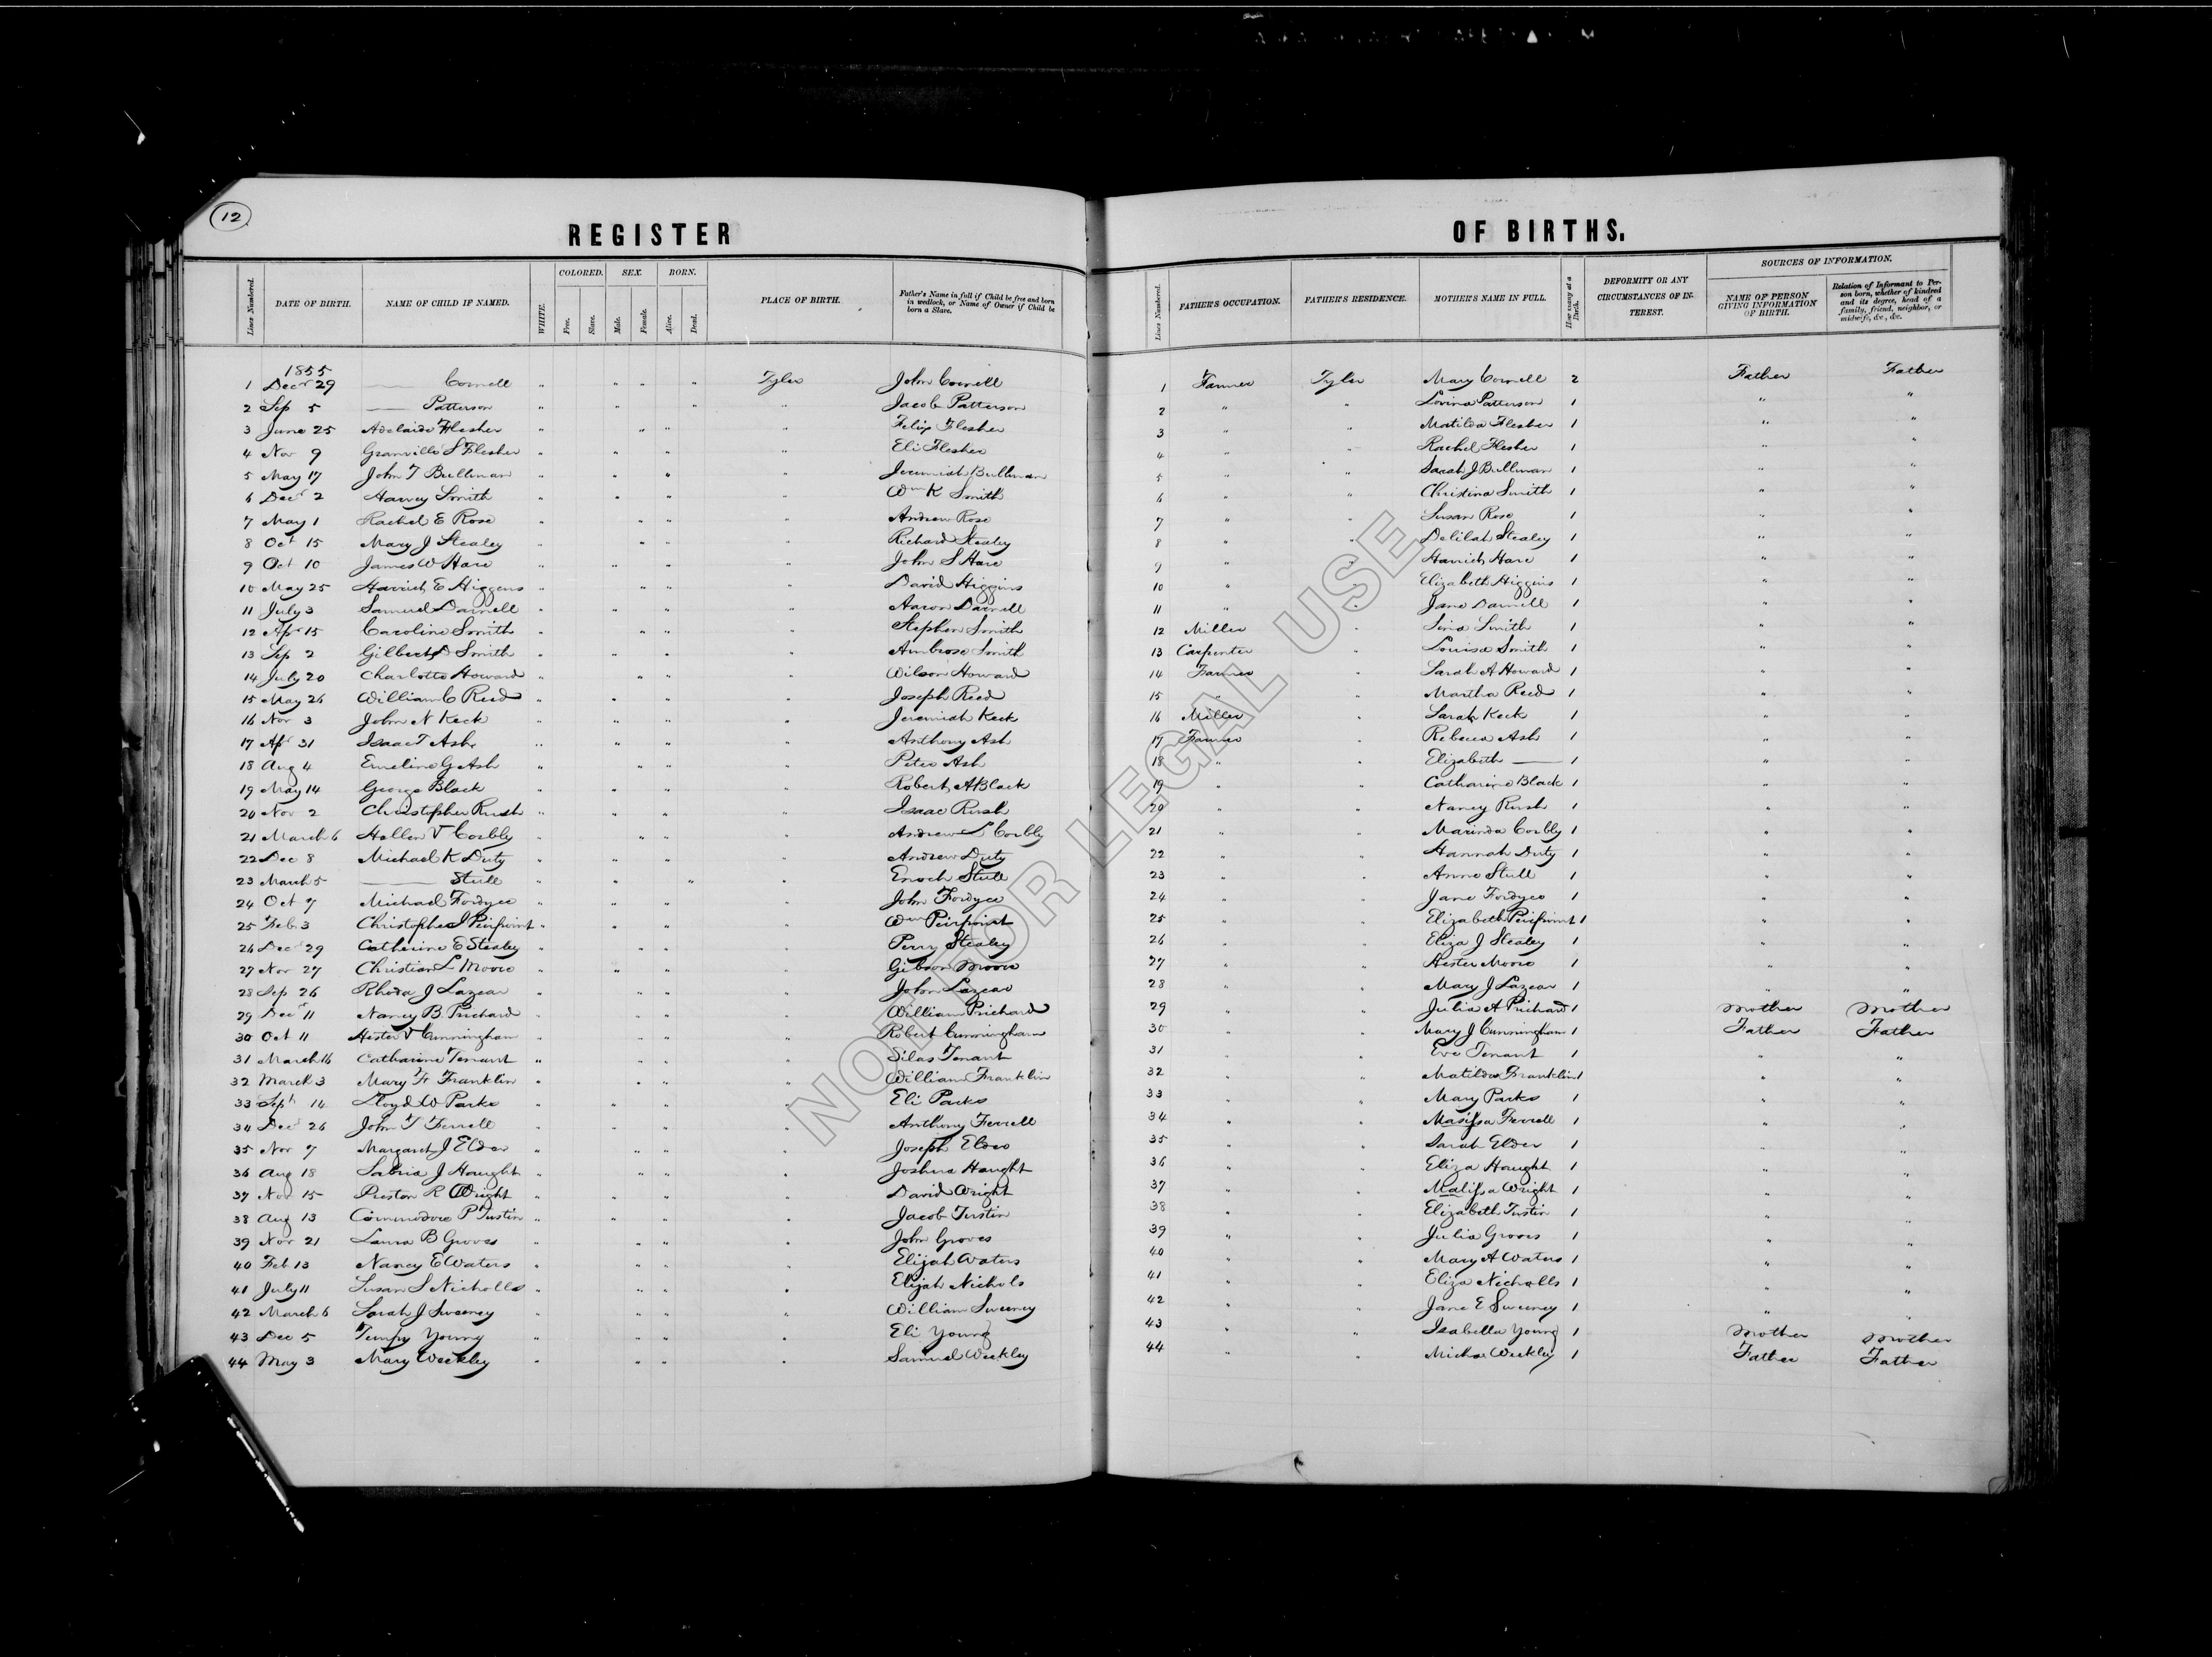 12
REGISTER OF BIRTHS.
Lines Numbered. DATE OF BIRTH. NAME OF CHILD IF NAMED. WHITE. COLORED. Free. Slave. SEX. Male. Female. BORN. Alive. Dead. PLACE OF BIRTH. Father's Name in full if Child be free and born in wedlock, or Name of Owner if Child be born a Slave. Lines Numbered. FATHER'S OCCUPATION. FATHER'S RESIDENCE. MOTHER'S NAME IN FULL. How many at a Birth. DEFORMITY OR ANY CIRCUMSTANCES OF INTEREST. SOURCES OF INFORMATION. NAME OF PERSON GIVING INFORMATION OF BIRTH. Relation of Informant to Person born, whether of kindred and its degree, head of a family, friend, neighbor, or midwife, &c., &c.
1855
1 Decr 29 —— Cornell " " " " Tyler John Cornell 1 Farmer Tyler Mary Cornell 2 Father Father
2 Sep 5 —— Patterson " " " " Jacob Patterson 2 " " Lovina Patterson 1 " "
3 June 25 Adelaide Flesher " " " " Felix Flesher 3 " " Matilda Flesher 1 " "
4 Nov 9 Granville S Flesher " " " " Eli Flesher 4 " " Rachel Flesher 1 " "
5 May 17 John T Bullman " " " " Jeremiah Bullman 5 " " Sarah J Bullman 1 " "
6 Decr 2 Harvey Smith " " " " Wm K Smith 6 " " Christina Smith 1 " "
7 May 1 Rachel E Rose " " " " Andrew Rose 7 " " Susan Rose 1 " "
8 Oct 15 Mary J Stealey " " " " Richard Stealey 8 " " Delilah Stealey 1 " "
9 Oct 10 James W Hare " " " " John S Hare 9 " " Hare 1 " "
10 May 25 E Higgens " " " " David Higgins 10 " " Elizabeth Higgins 1 " "
11 July 3 Samuel Darnell " " " " Aaron Darnell 11 " " Jane Darnell 1 " "
12 Apr 15 Caroline Smith " " " " Stephen Smith 12 Miller " Smith 1 " "
13 Sep 2 Gilbert D Smith " " " " Ambrose Smith 13 Carpenter " Louisa Smith 1 " "
14 July 20 Charlotte Howard " " " " Wilson Howard 14 Farmer " Sarah A Howard 1 " "
15 May 26 William C Reed " " " " Joseph Reed 15 " " Martha Reed 1 " "
16 Nov 3 John N Keck " " " " Jeremiah Keck 16 Miller " Sarah Keck 1 " "
17 Apr 31 Isaac T Ash " " " " Anthony Ash 17 Farmer " Rebecca Ash 1 " "
18 Aug 4 Emeline G Ash " " " " Peter Ash 18 " " Elizabeth —— 1 " "
19 May 14 George Black " " " " Robert A Black 19 " " Catharine Black 1 " "
20 Nov 2 Christopher Rush " " " " Isaac Rush 20 " " Nancy Rush 1 " "
21 March 6 Hellen V Corbly " " " " Andrew L Corbly 21 " " Marinda Corbly 1 " "
22 Dec 8 Michael K Duty " " " " Andrew Duty 22 " " Hannah Duty 1 " "
23 March 5 —— Stull " " " " Enoch Stull 23 " " Anne Stull 1 " "
24 Oct 7 Michael Fordyce " " " " John Fordyce 24 " " Jane Fordyce 1 " "
25 Feb 3 Christopher J Peirpoint " " " " Wm Peirpoint 25 " " Elizabeth Peirpoint 1 " "
26 Decr 29 Catherine E Stealey " " " " Perry Stealey 26 " " Eliza J Stealey 1 " "
27 Nov 27 Christian L Moore " " " " Gibson Moore 27 " " Hester Moore 1 " "
28 Sep 26 Rhoda J Lazear " " " " John Lazear 28 " " Mary J Lazear 1 " "
29 Decr 11 Nancy B Prichard " " " " William Prichard 29 " " Julia A Prichard 1 Mother Mother
30 Oct 11 Hester V Cunningham " " " " Robert Cunningham 30 " " Mary J Cunningham 1 Father Father
31 March 16 Catharine Tenant " " " " Silas Tenant 31 " " Eve Tenant 1 " "
32 March 3 Mary Fr Franklin " " " " William Franklin 32 " " Matilda Franklin 1 " "
33 Sept 14 Lloyd W Parks " " " " Eli Parks 33 " " Mary Parks 1 " "
34 Decr 26 John T Ferrell " " " " Anthony Ferrell 34 " " Masissa Ferrell 1 " "
35 Nov 7 Margaret J Elder " " " " Joseph Elder 35 " " Sarah Elder 1 " "
36 Aug 18 Sabria J Haught " " " " Joshua Haught 36 " " Eliza Haught 1 " "
37 Nov 15 Preston R Wright " " " " David Wright 37 " " Malissa Wright 1 " "
38 Aug 13 Commodore P Tustin " " " " Jacob Tustin 38 " " Elizabeth Tustin 1 " "
39 Nov 21 Laura B Groves " " " " John Groves 39 " " Julia Groves 1 " "
40 Feb 13 Nancy E Waters " " " " Elijah Waters 40 " " Mary A Waters 1 " "
41 July 11 Susan S Nicholls " " " " Elijah Nichols 41 " " Eliza Nicholls 1 " "
42 March 6 Sarah J Sweeney " " " " William Sweeney 42 " " Jane E Sweeney 1 " "
43 Dec 5 Tempy Young " " " " Eli Young 43 " " Isabella Young 1 Mother Mother
44 May 3 Mary Weekley " " " " Samuel Weekley 44 " " Weekley 1 Father Father
NOT FOR LEGAL USE